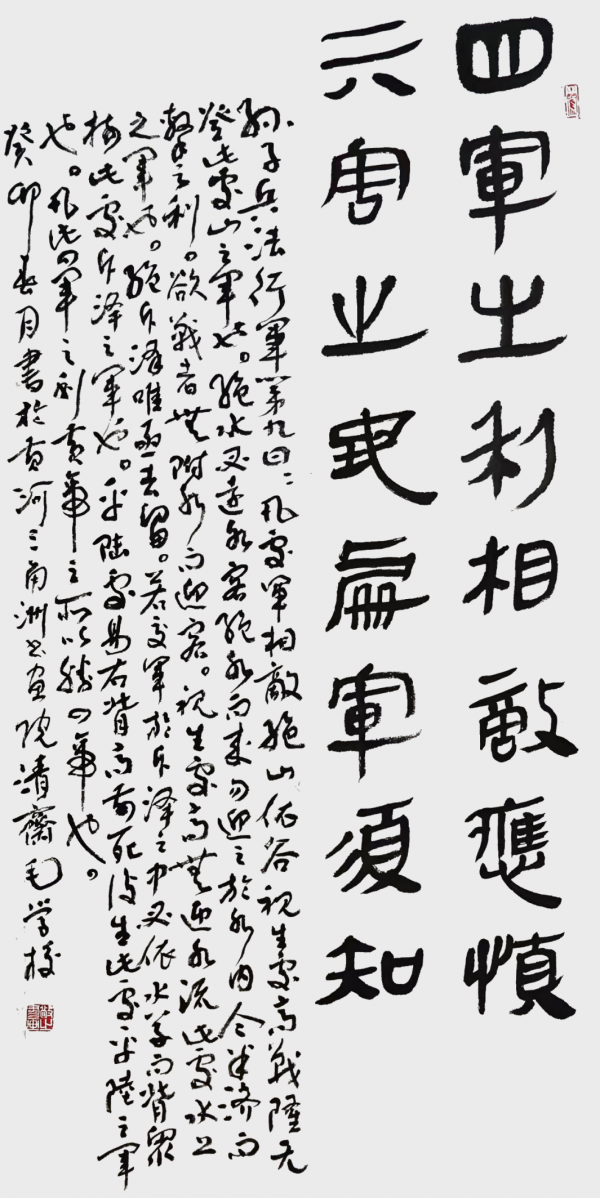 四軍之利相敵應慎
六害之軍須知
孫子兵法行軍第九曰：凡處軍相敵絶山依谷視生處高戰隆无
登此處山之軍也。絶水必遠水客絶水而來勿迎之於水内令半濟而
擊之利。欲戰者無附水而迎客。視生處高無迎水流此處水上
之軍也。絶斥澤唯亟去留。若交軍於斥澤之中必依水草而背眾
樹此處斥澤之軍也。平陸處易右背高前死後生此處平陸之軍
也。凡此四軍之利黄帝之所以勝四帝也。
癸卯春月書於黄河三角洲书画院清齋毛学校